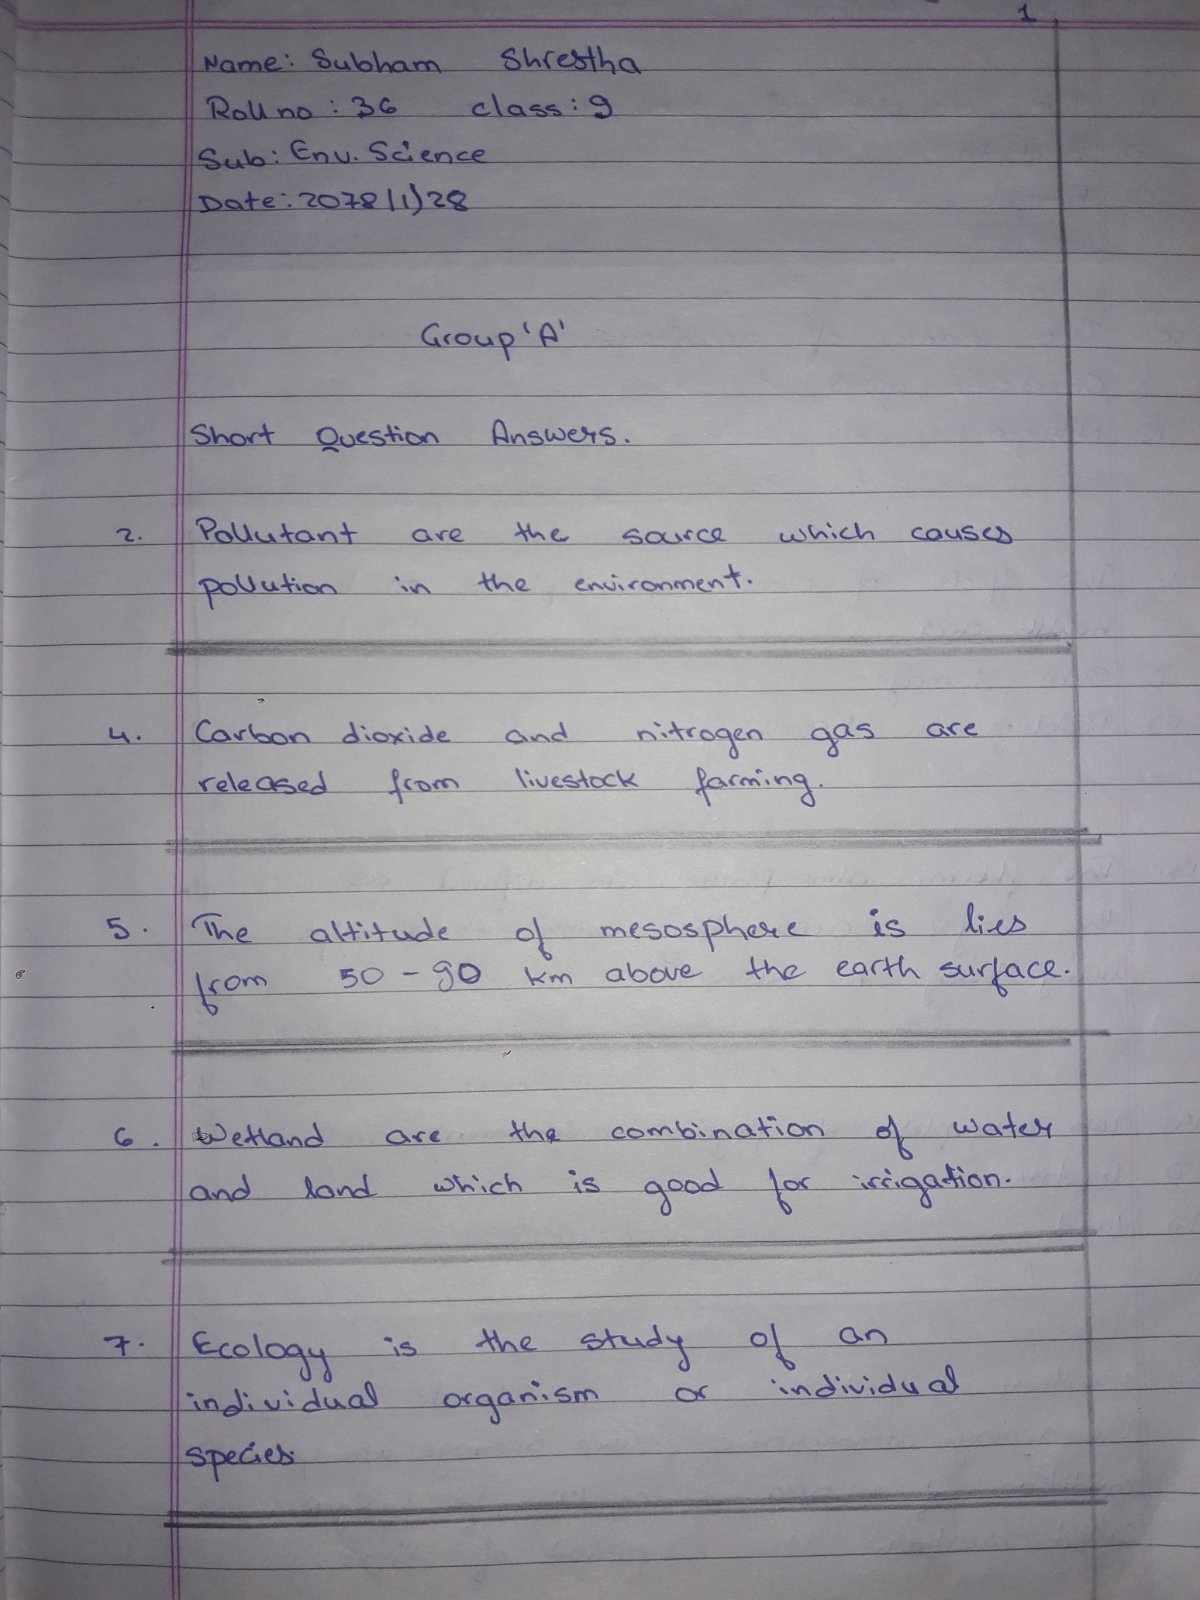 1
Name: Subham Shrestha
Roll no : 36 class: 9
Sub: Env. Science
Date: 2078/1/28
Group 'A'
Short Question Answers.
2. Pollutant are the source which causes
pollution in the environment.
4. Carbon dioxide and nitrogen gas are
released from livestock farming.
5. The altitude of mesosphere is lies
from 50-90 km above the earth surface.
6. Wetland are the combination of water
and land which is good for irrigation.
7. Ecology is the study of an
individual organism or individual
species.